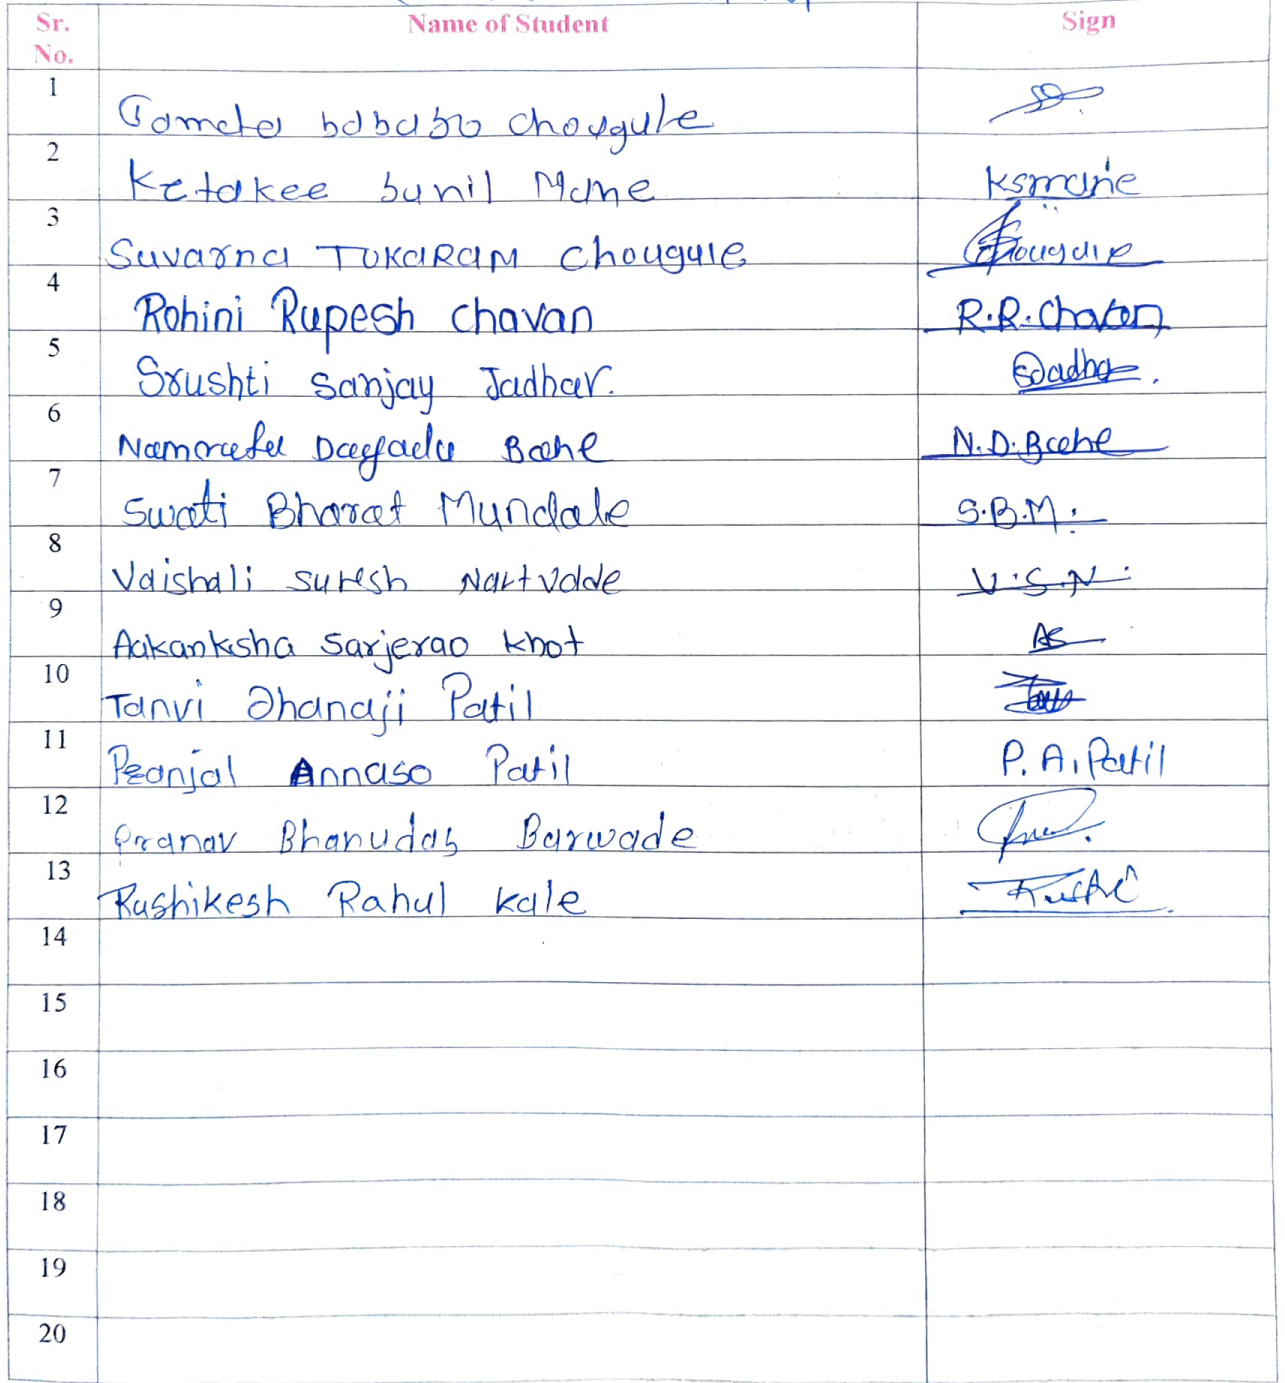 Sr. No. Name of Student Sign
1 babaso chougule
2 Ketakee sunil Mane ksmane
3 Suvarna TUKARAM Chougule Chougule
4 Rohini Rupesh chavan R.R.Chavan
5 Srushti Sanjay Jadhav. Jadhav.
6 Namrata Dagadu Bane N.D.Bane
7 Swati Bharat Mundale S.B.M.
8 Vaishali suresh V.S.N.
9 Aakanksha Sarjerao khot AS
10 Tanvi Dhanaji Patil
11 Pranjal Annaso Patil P.A.Patil
12 Pranav Bhanudas Barwade
13 Rushikesh Rahul kale
14
15
16
17
18
19
20